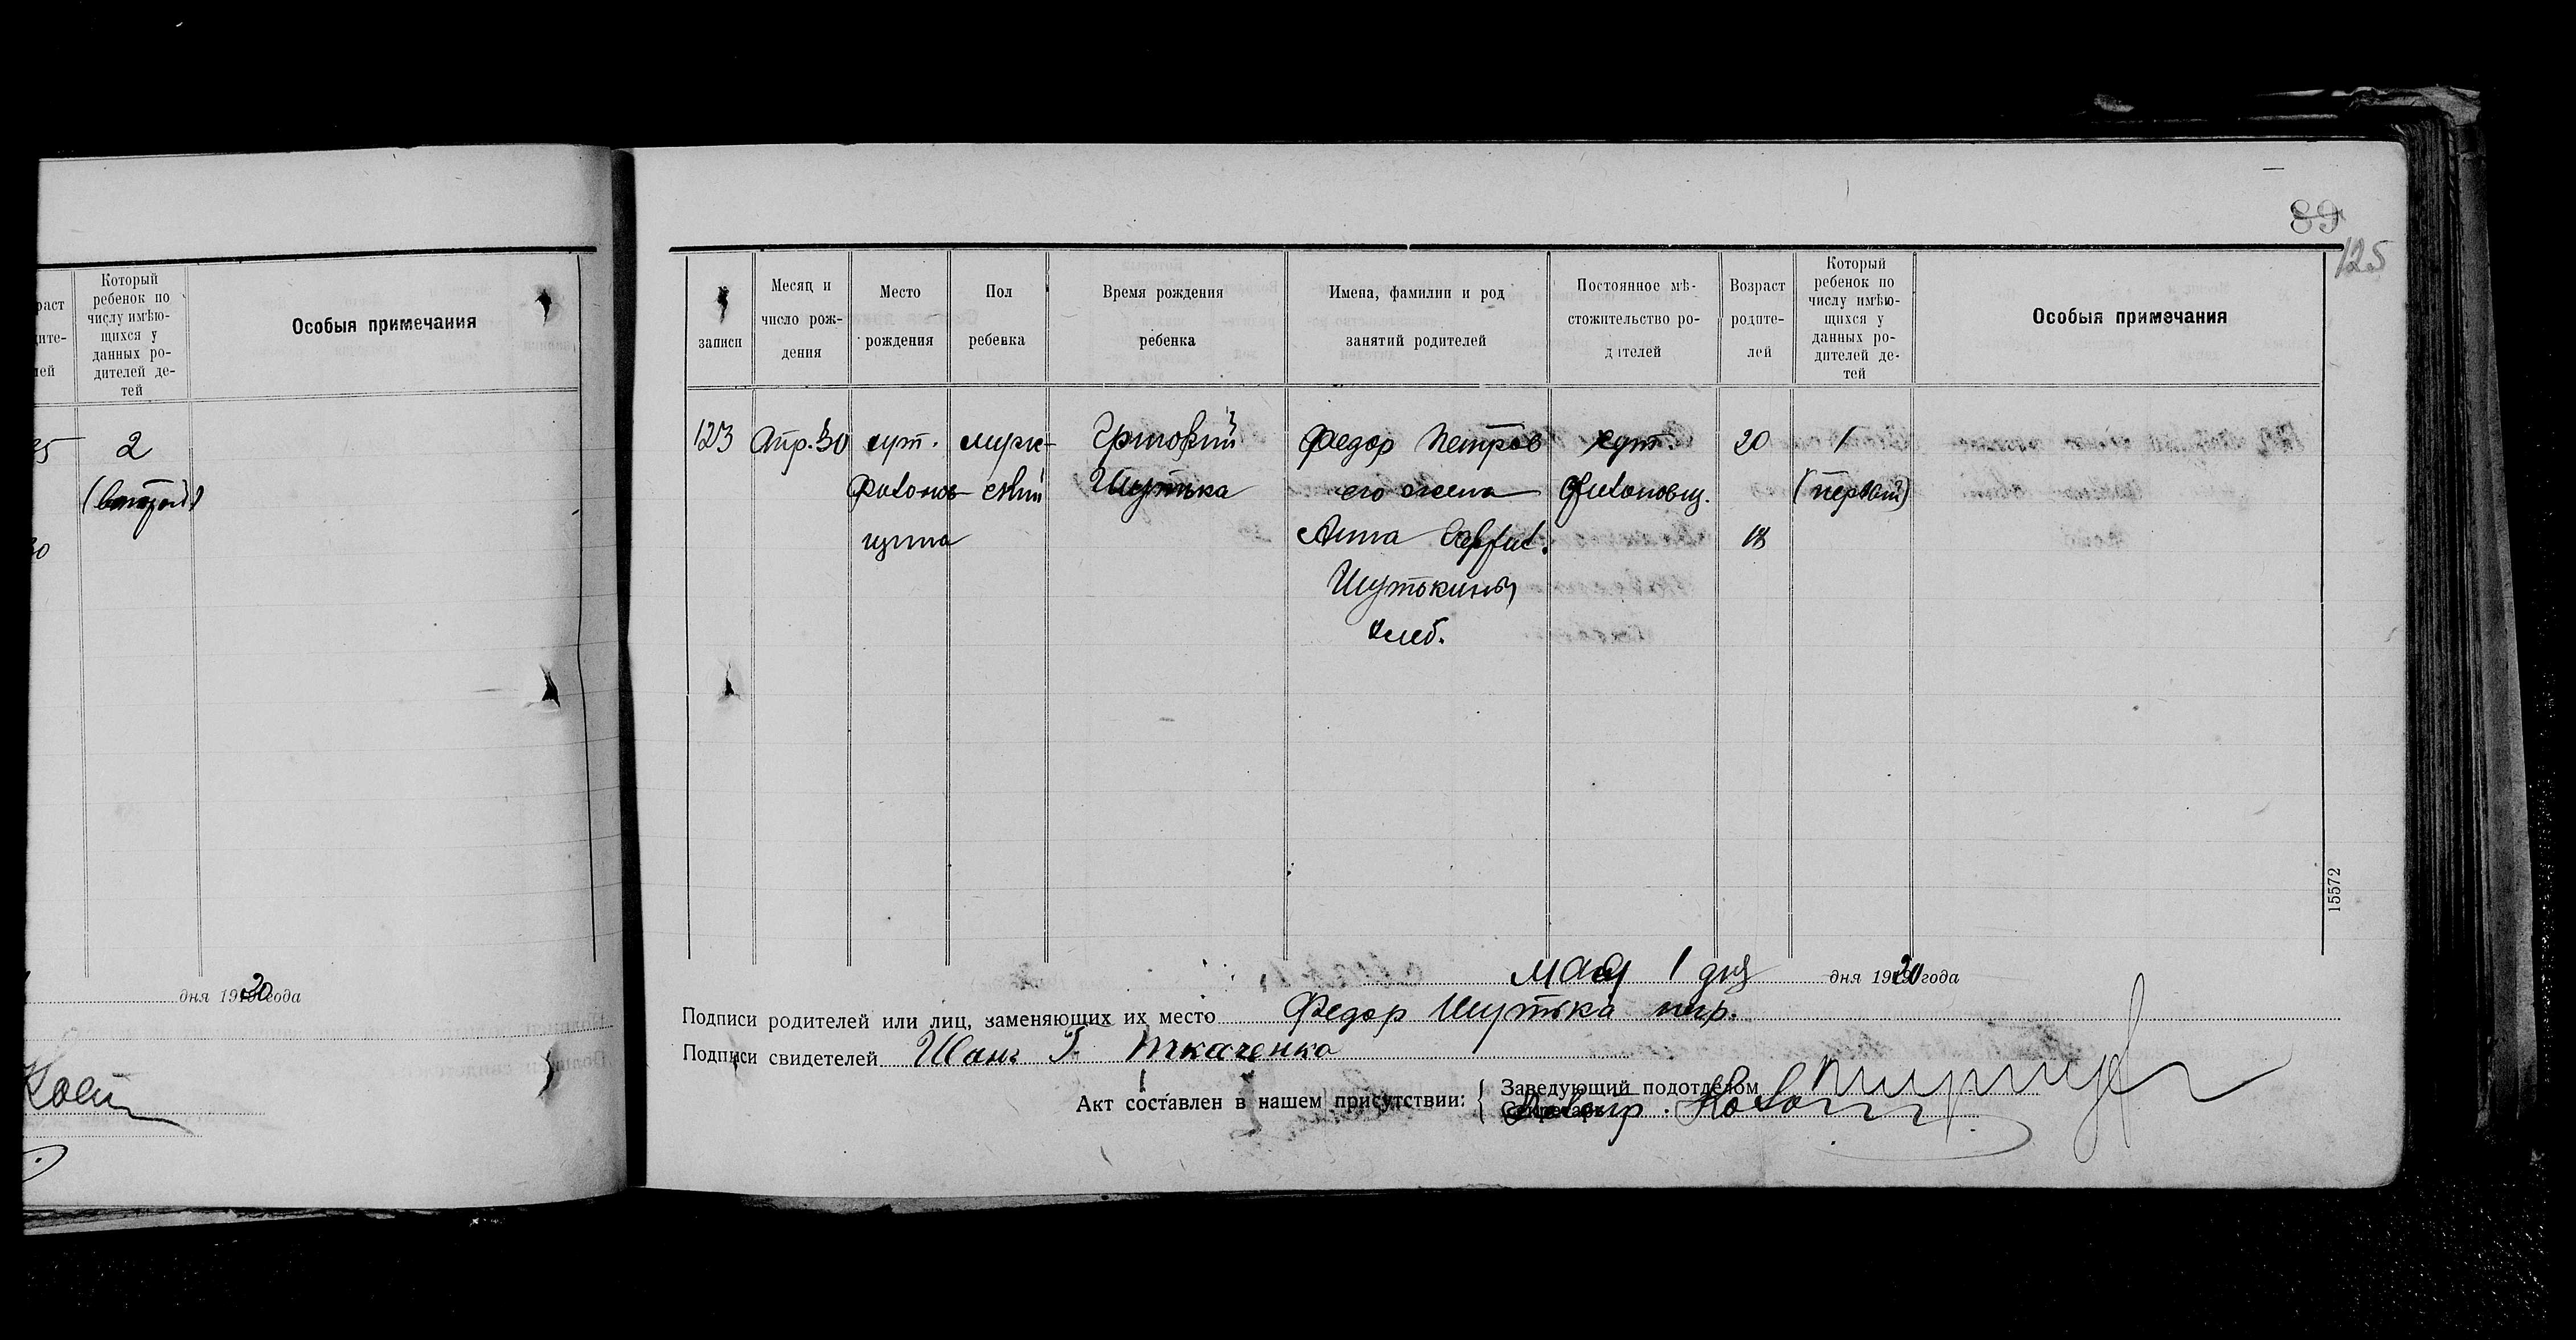 раст
дите-
лей
Который
ребенок по
числу имѣю-
щихся у
данных ро-
дителей де-
тей
Особыя примечания
35
2
(второй)
30
дня 1920 года
89
125
записи
Месяц и
число рож-
дения
Место
рождения
Пол
ребенка
Время рождения
ребенка
Имена, фамилии и род
занятий родителей
Постоянное мѣ-
стожительство ро-
дителей
Возраст
родите-
лей
Который
ребенок по
числу имѣю-
щихся у
данных ро-
дителей де-
тей
Особыя примечания
123 Апр. 30 хут. мужс- Григорий Федор Петров хут. 20 1
ский Шутька его жена (первый)
щина Анна 18
Шутькины
хлеб.
15572
мая 1 дня дня 1920 года
Подписи родителей или лиц, заменяющих их место Федор Шутька
Подписи свидетелей Ткаченко
Акт составлен в нашем присутствии:
Заведующий подотделом